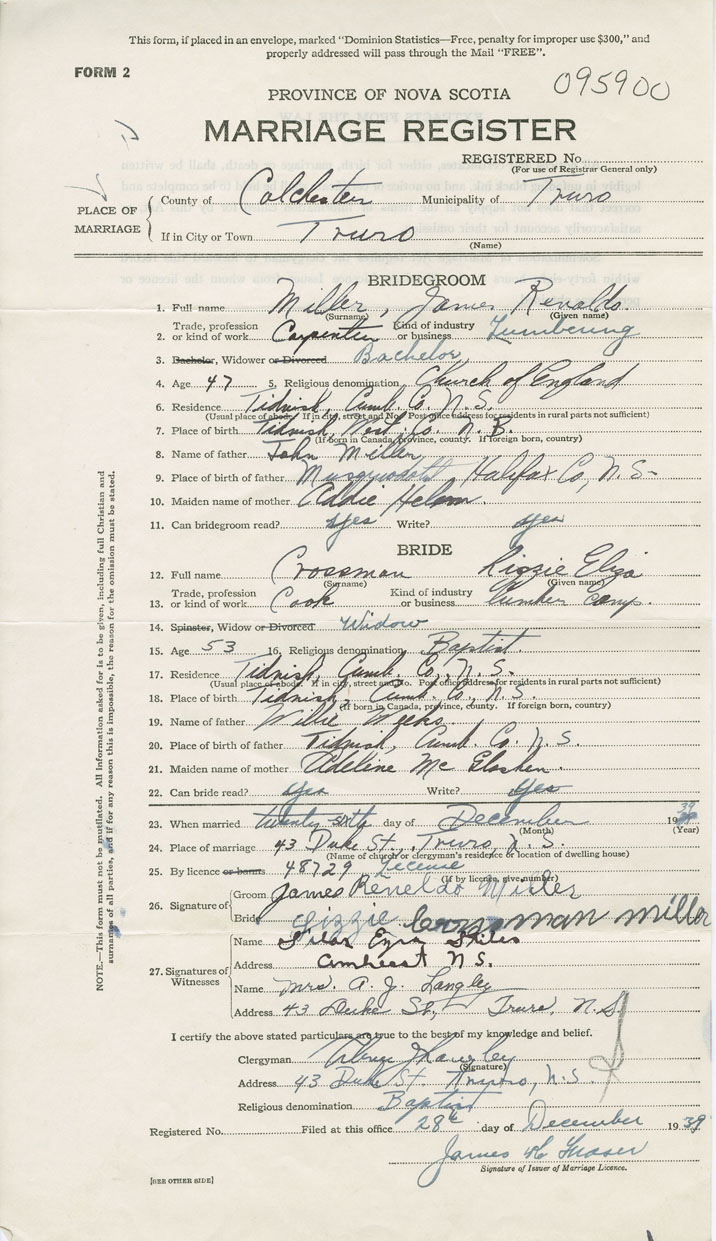 This form, if placed in an envelope, marked "Dominion Statistics—Free, penalty for improper use $300," and
properly addressed will pass through the Mail "FREE".
FORM 2
095900
PROVINCE OF NOVA SCOTIA
MARRIAGE REGISTER
REGISTERED No.
(For use of Registrar General only)
PLACE OF MARRIAGE
County of Colchester Municipality of Truro
If in City or Town Truro
(Name)
BRIDEGROOM
1. Full name Miller, James Renaldo.
(Surname) (Given name)
2. Trade, profession or kind of work Carpenter Kind of industry or business Lumbering
3. Bachelor, Widower or Divorced Bachelor
4. Age 47 5. Religious denomination Church of England
6. Residence Tidnish, Cumb. Co. N.S.
(Usual place of abode. If in city, street and No. Post office address for residents in rural parts not sufficient)
7. Place of birth Tidnish, West. Co. N.B.
(If born in Canada, province, county. If foreign born, country)
8. Name of father John Miller
9. Place of birth of father Halifax Co, N.S.
10. Maiden name of mother Addie
11. Can bridegroom read? yes Write? yes
BRIDE
12. Full name Crossman Lizzie Eliza
(Surname) (Given name)
13. Trade, profession or kind of work Cook Kind of industry or business Lumber Camp.
14. Spinster, Widow or Divorced Widow
15. Age 53 16. Religious denomination Baptist.
17. Residence Tidnish, Cumb. Co., N.S.
(Usual place of abode. If in city, street and No. Post office address for residents in rural parts not sufficient)
18. Place of birth Tidnish, Cumb. Co., N.S.
(If born in Canada, province, county. If foreign born, country)
19. Name of father Willie Weeks.
20. Place of birth of father Tidnish, Cumb. Co. N.S.
21. Maiden name of mother Adeline
22. Can bride read? yes Write? yes
23. When married twenty sixth day of December 1939
(Month) (Year)
24. Place of marriage 43 Duke St., Truro, N.S.
(Name of church or clergyman's residence or location of dwelling house)
25. By licence or banns 48729 License
(If by licence, give number)
26. Signature of
Groom James Reneldo Miller
Bride Lizzie Crossman miller
27. Signatures of Witnesses
Name Silas Ezra Stiles
Address Amherst N S.
Name Mrs. A. J. Langley
Address 43 Duke St., Truro, N.S.
I certify the above stated particulars are true to the best of my knowledge and belief.
Clergyman Langley
(Signature)
Address 43 Duke St. Truro, N.S.
Religious denomination Baptist
Registered No. Filed at this office 28th day of December 1939
James
Signature of Issuer of Marriage Licence.
[SEE OTHER SIDE]
NOTE.—This form must not be mutilated. All information asked for is to be given, including full Christian and
surnames of all parties, and if for any reason this is impossible, the reason for the omission must be stated.